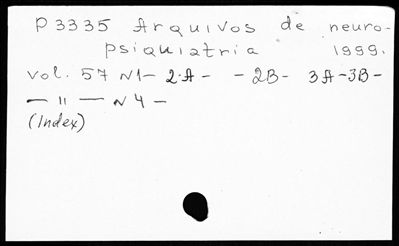 P3335 Arquivos de neuro-
psiquiatria 1999.
vol. 57 N1- 2-A - - 2B- 3A-3B-
— " — N4 -
(Index)